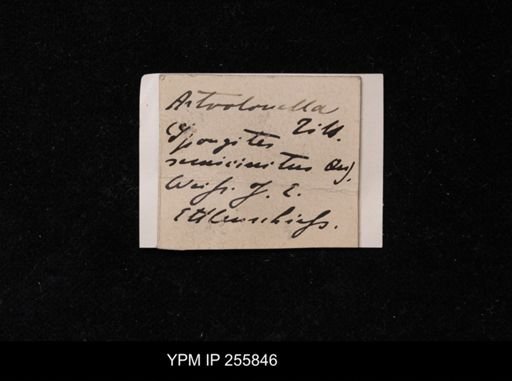 Astrolonella
Zitt.
Spongites
semicinctus Qu.
Weiss. J. E.
YPM IP 255846